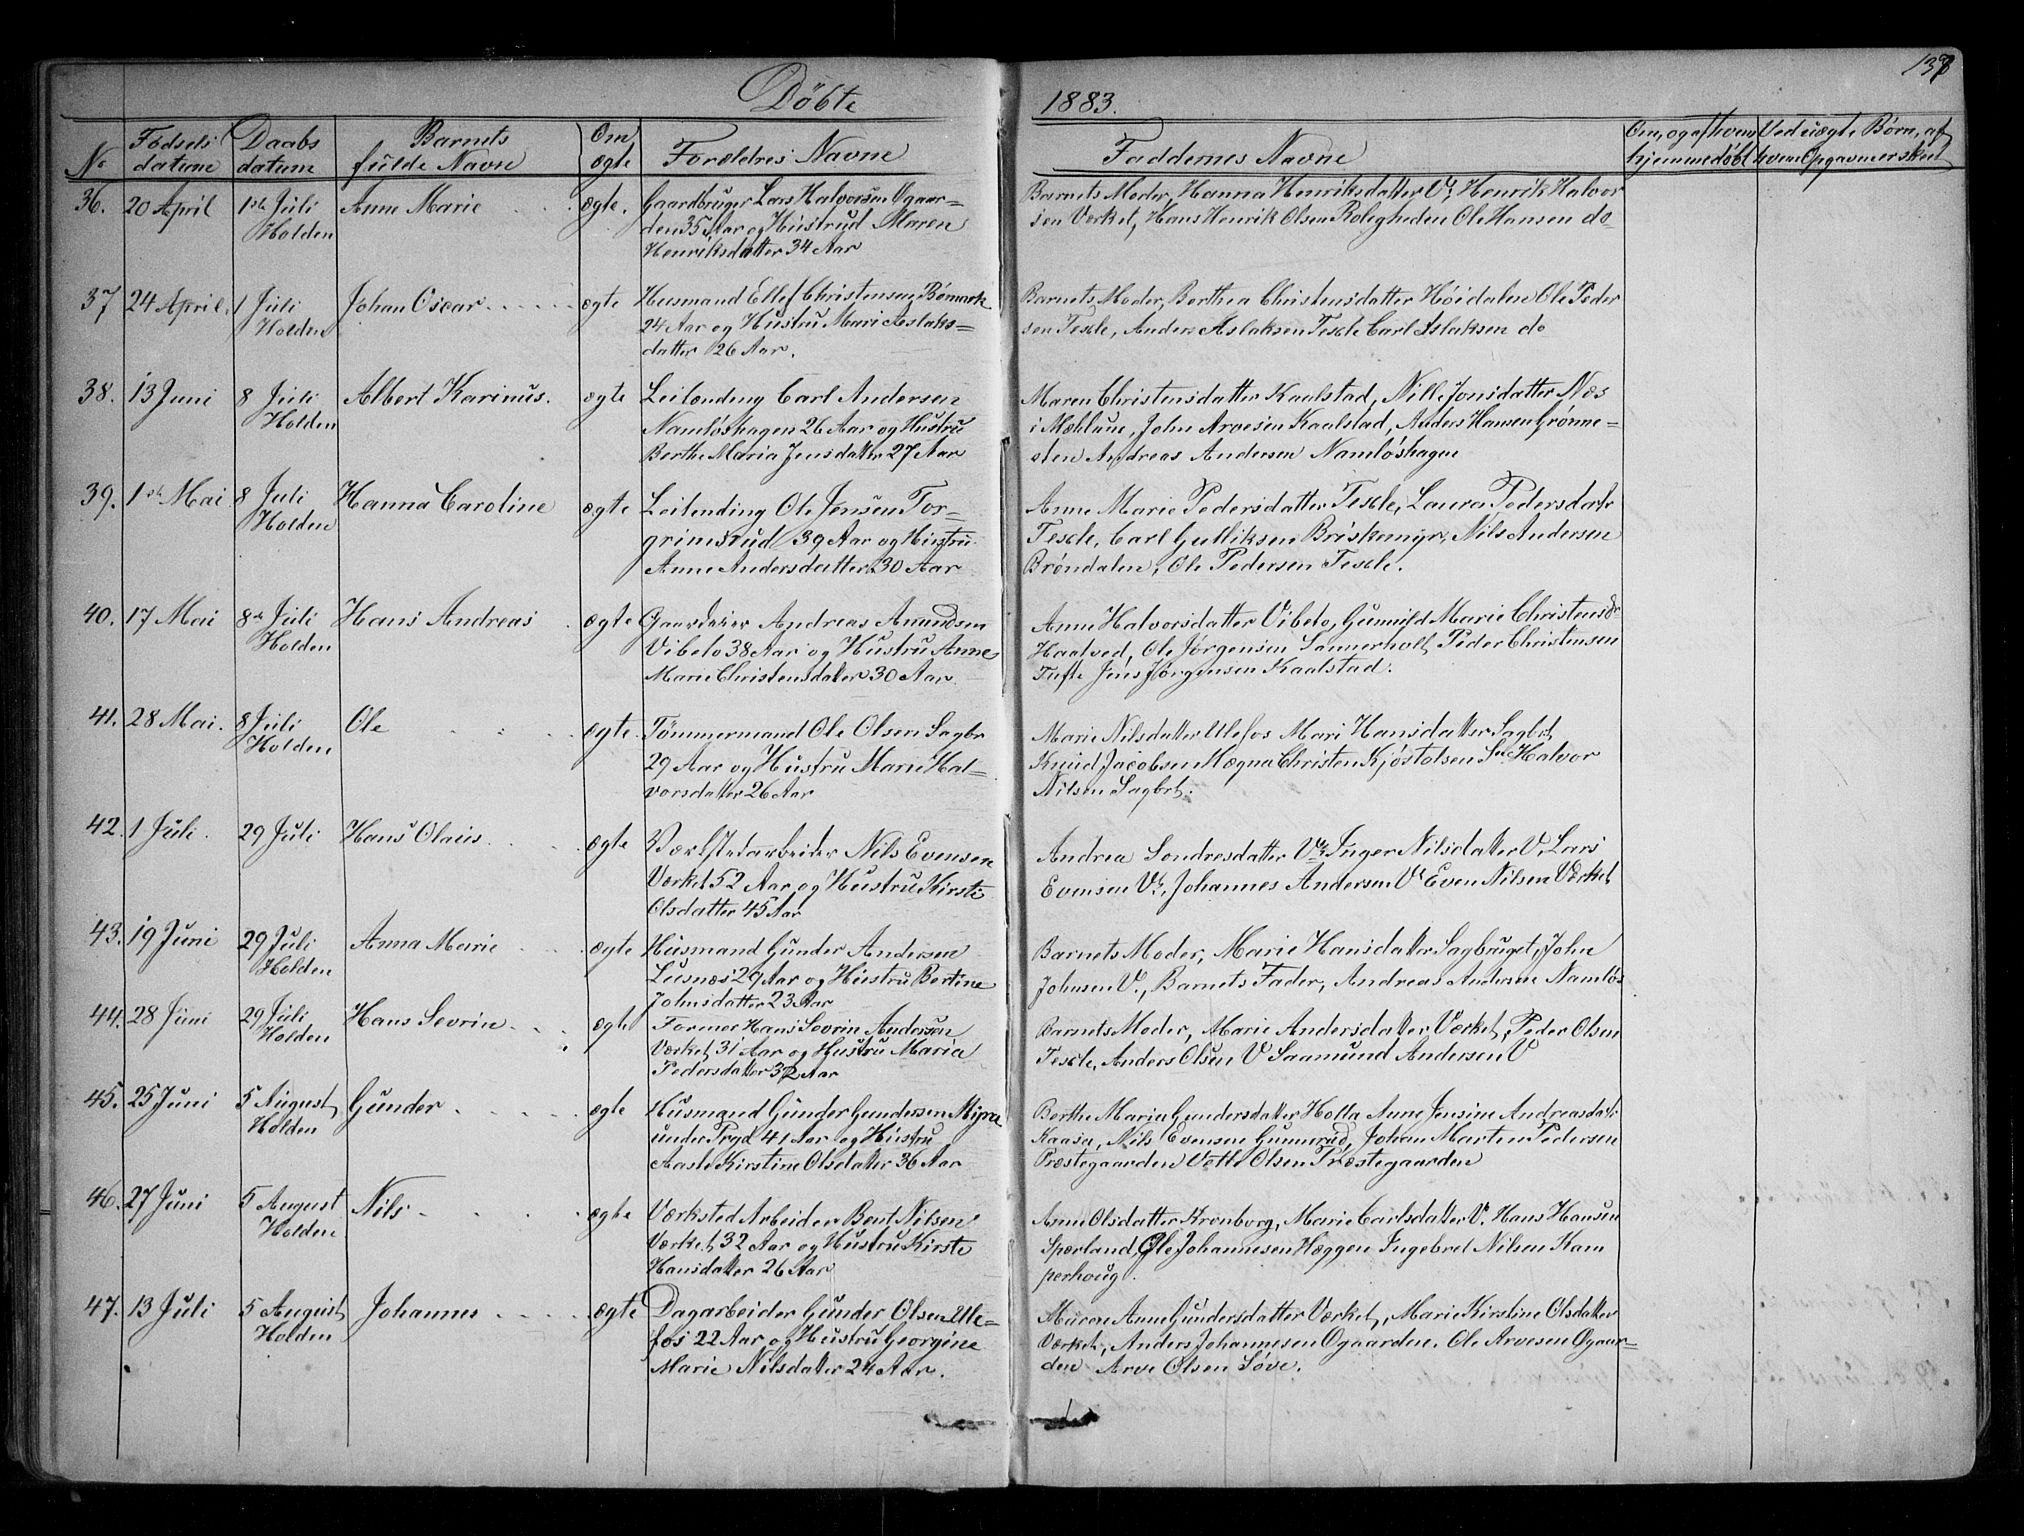 Döbte
1883.
137
No
Födsels
datum
Daabs
datum
Barnets
fulde Navn
Om
ægte
Forældres Navne
Faddernes Navne
Om, og af hvem
hjemmedöbt
Ved uægte Börn, af
hvem Opgaven er skeet
36. 20 April
1ste Juli
Holden
Anne Marie
ægte.
Gaardbruger Lars Halvorsen Ogaar=
den 35 Aar og Hustrud Maren
Henriksdatter 34 Aar
Barnets Moder, Hanna Henriksdatter V. Henrik Halvor
sen Værket, Hans Henrik Olsen Roligheden Ole Hansen do
37 24 April.
1 Juli
Holden
Johan Oscar
ægte
Husmand Ellef Christensen Römark
24 Aar og Hustru Mari Aslaks=
datter 26 Aar.
Barnets Moder, Berthea Christensdatter Höidalen Ole Peder
sen Teksle, Anders Aslaksen Teksle Carl Aslaksen do
38. 13 Juni
8 Juli
Holden
Albert Karinus.
ægte
Leilending Carl Andersen
Namlöshagen 26 Aar og Hustru
Berthe Maria Jensdatter 27 Aar
Maren Christensdatter Kaalstad, Nille Jonsdatter Næs
i Mælum, John Arvesen Kaalstad, Anders Hansen Grönne=
sten Andreas Andersen Namlöshagen
39. 1ste Mai
8 Juli
Holden
Hanna Caroline
ægte
Leilending Ole Jensen Tor=
grimsrud 39 Aar og Hustru
Anne Andersdatter 30 Aar
Anne Marie Pedersdatter Teksle, Laura Pedersdatr
Teksle, Carl Gulliksen Briskemyr, Nils Andersen
Bröndalen, Ole Pedersen Teksle.
40. 17 Mai
8de Juli
Holden
Hans Andreas
ægte
Gaardeier Andreas Amundsen
Vibeto 38 Aar og Hustru Anne
Marie Christensdater 30 Aar
Anne Halvorsdatter Vibeto, Gunnild Marie Christensdr
Haatved, Ole Jörgensen Sannerholt Peder Christensen
Tufte Jens Jörgensen Kaalstad.
41. 28 Mai.
8 Juli
Holden
Ole
ægte.
Tömmermand Ole Olsen Sagbr
29 Aar og Hustru Marie Hal=
vorsdatter 26 Aar
Marie Nilsdatter Ulefos Mari Hansdatter Sagbrt
Knud Jacobsen Hægna Christen Kjöstolsen Halvor
Nilsen Sagbrt.
42. 1 Juli.
29 Juli
Hans Olaus
ægte
Værkstedarbeider Nils Evensen
Værket 52 Aar og Hustru Kirsti
Olsdatter 45 Aar
Andrea Sondresdatter V. Inger Nilsdatter V. Lars
Evensen V., Johannes Andersen V Even Nilsen Værket
43. 19 Juni
29 Juli
Holden
Anna Marie
ægte
Husmand Gunder Andersen
Lusnæs 29 Aar og Hustru Bertine
Johnsdatter 23 Aar
Barnets Moder, Marie Hansdatter Sagbruget, John
Johnsen V., Barnets Fader, Andreas Andersen Namlös
44. 28 Juni
29 Juli
Holden
Hans Sevrin
ægte
Former Hans Sevrin Andersen
Værket 31 Aar og Hustru Maria
Pedersdatter 32 Aar
Barnets Moder, Marie Andersdatter Værket, Peder Olsen
Teksle, Anders Olsen V Saamund Andersen V
45. 25 Juni
5 August
Holden
Gunder
ægte
Husmand Gunder Gundersen Myra
under Pryd 41 Aar og Hustru
Aaste Kirstine Olsdatter 36 Aar
Berthe Maria Gundersdatter Holla Anne Jensine Andreasdatr
Kaasa, Nils Evensen Gunnerud, Johan Martin Pedersen
Præstegaarden Vetle Olsen Præstegaarden
46. 27 Juni
5 August
Holden
Nils
ægte
Værksted Arbeider Bent Nilsen
Værket 32 Aar og Hustru Kirste
Hansdatter 26 Aar
Anne Olsdatter Kronborg, Marie Carlsdatter V. Hans Hansen
Sperland, Ole Johannesen Hæggen Ingebret Nilsen Kam
perhoug.
47. 13 Juli
5 August
Holden
Johannes
ægte
Dagarbeider Gunder Olsen Ule=
fos 22 Aar og Hustru Georgine
Marie Nilsdatter 24 Aar.
Maren Anne Gundersdatter Værket, Marie Kirstine Olsdatter
Værket, Anders Johannesen Ogaarden. Ole Arvesen Ogaar=
den Arve Olsen Söve.